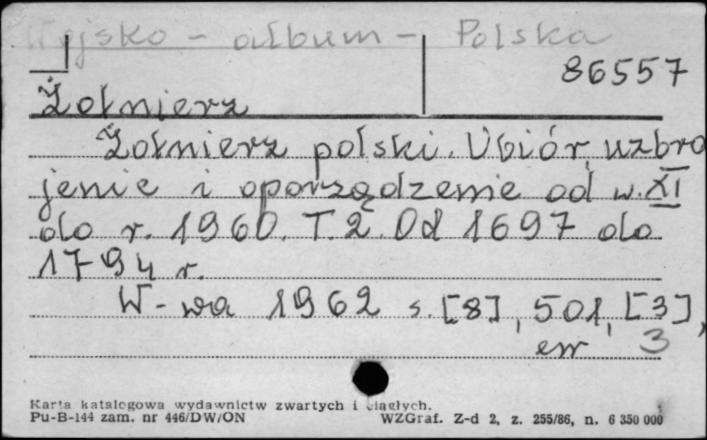 Wojsko - album - Polska
86557
Żołnierz
Żołnierz polski. Ubiór, uzbro
jenie i oporządzenie od w. XI
do r. 1960. T. 2. Od 1697 do
1794 r.
W-wa 1962 s. [8], 501, [3],
err 3
Karta katalogowa wydawnictw zwartych i ciągłych.
Pu-B-144 zam. nr 446/DW/ON WZGraf. Z-d 2, z. 255/86, n. 6 350 000